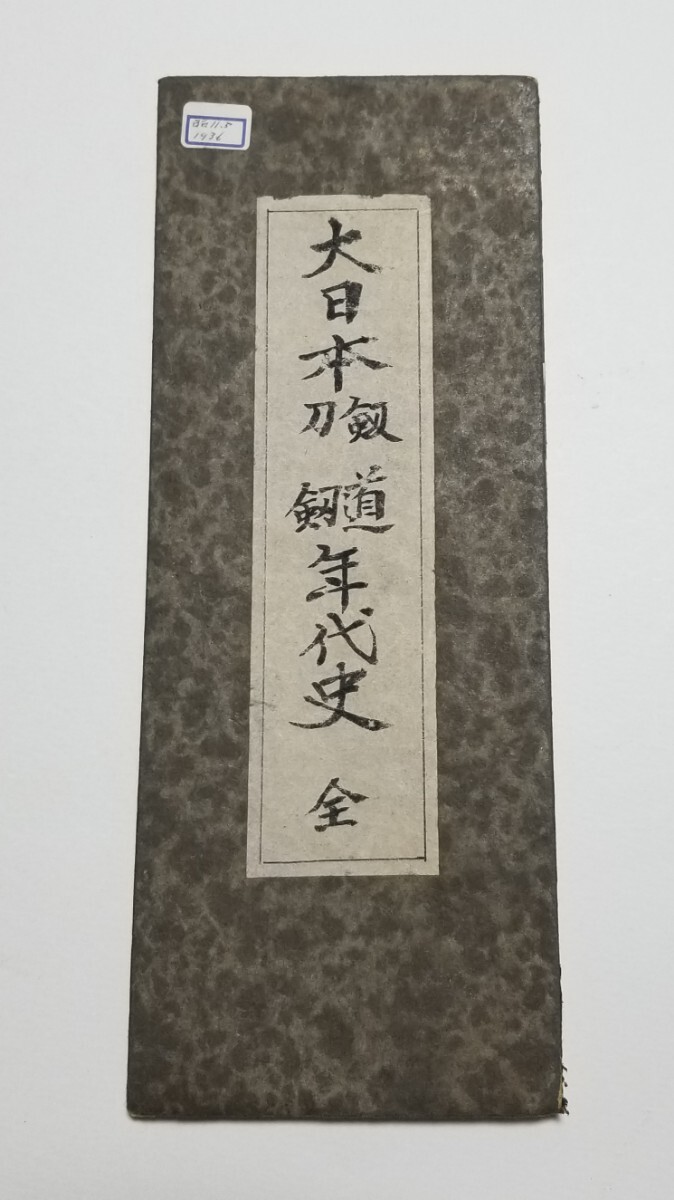 昭11.5
1936
大日本刀剱剱道年代史 全